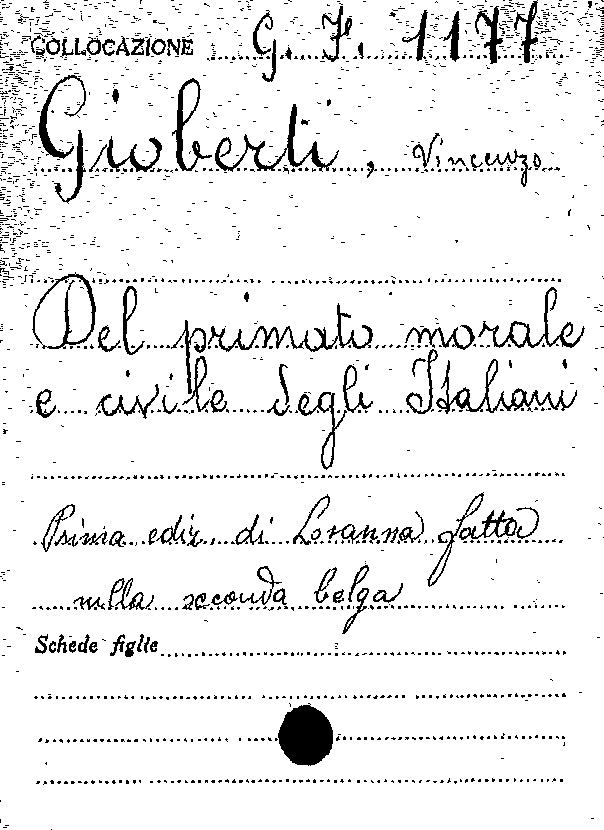 COLLOCAZIONE G. F. 1177
Gioberti, Vincenzo
Del primato morale
e civile degli Italiani
Prima ediz. di Losanna fatta
nella seconda belga
Schede figlie